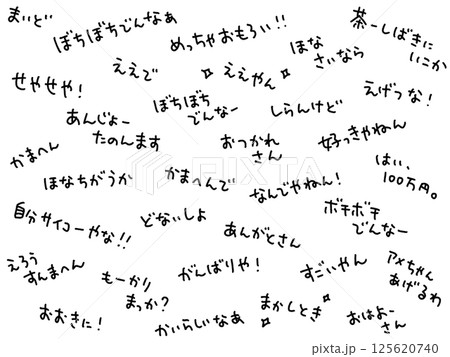 まいど
ぼちぼちでんなぁ
めっちゃおもろい!!
ほな
さいなら
茶ーしばきに
いこか
せやせや!
ええで
ええやん
えげつな!
あんじょー
たのんます
ぼちぼち
でんなー
しらんけど
かまへん
おつかれ
さん
好っきゃねん
はい、
100万円。
ほなちがうか
かまへんで
なんでやねん!
自分サイコーやな!!
どないしよ
あんがとさん
ボチボチ
でんなー
えろう
すんまへん
もーかり
まっか?
がんばりや!
すごいやん
アメちゃん
あげるわ
おおきに!
かいらしいなあ
まかしとき
おはよー
さん
PIXTA
125620740